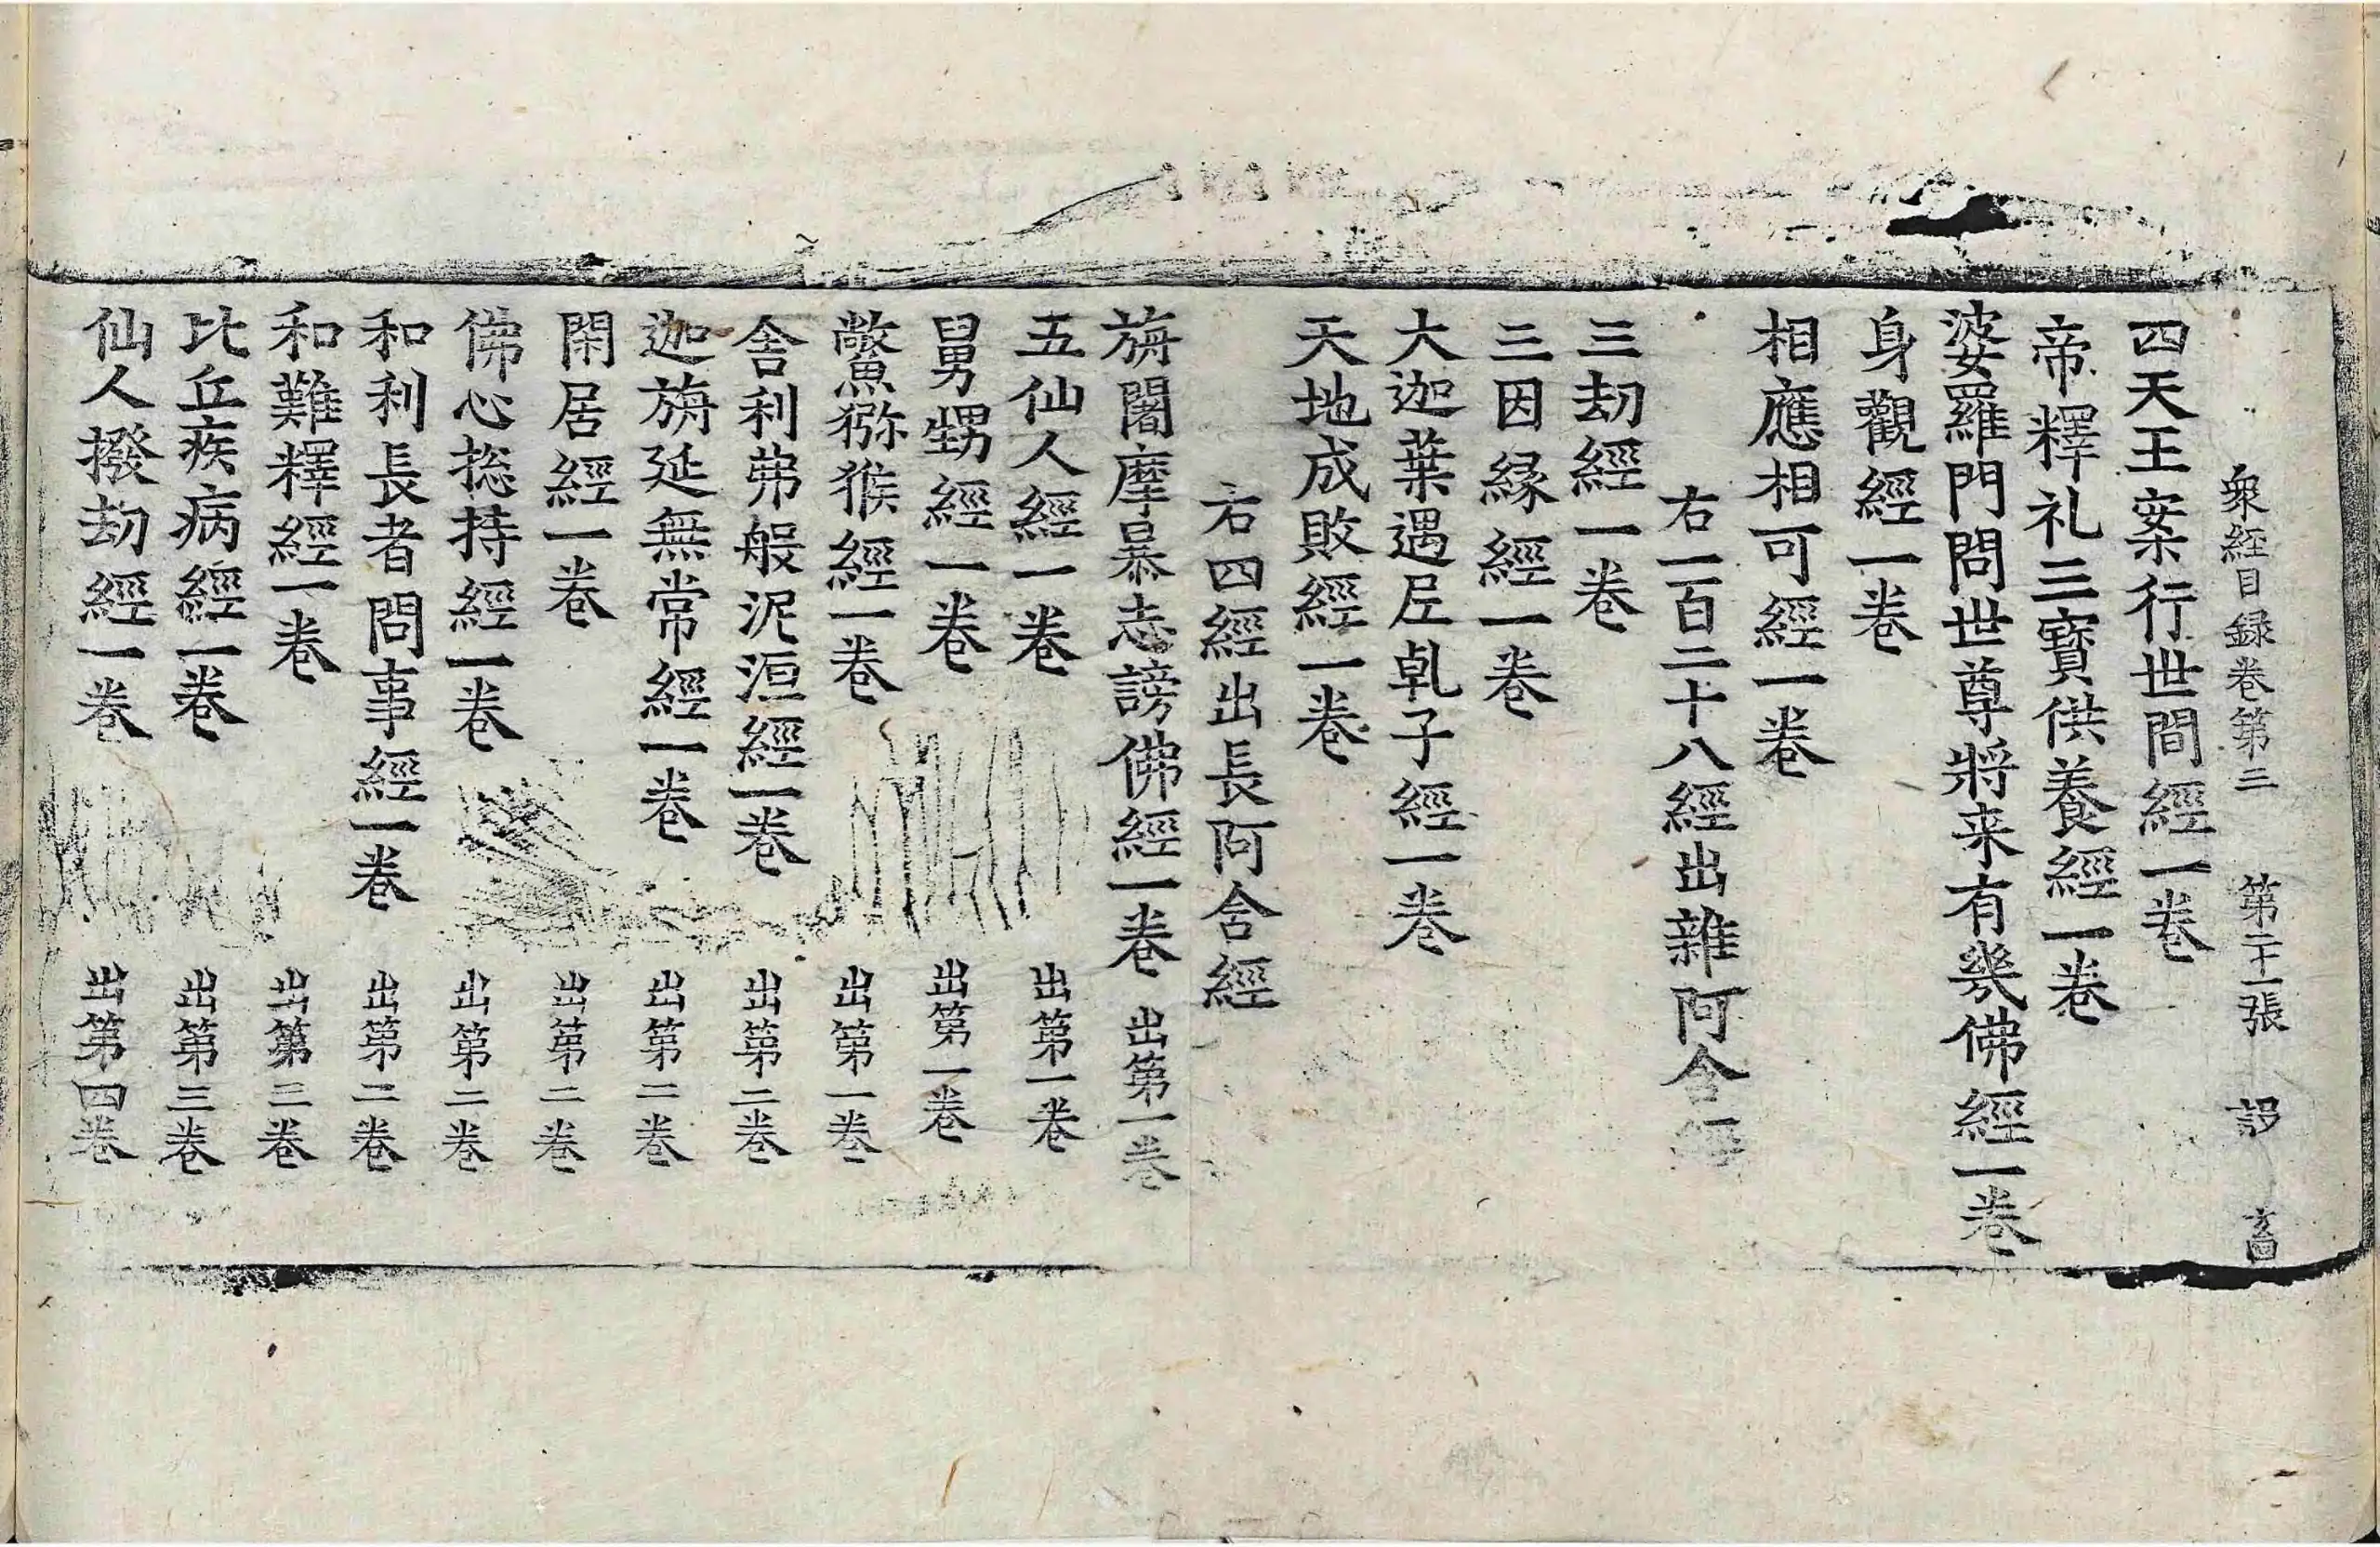 衆經目録卷第三 第二十一張 設
四天王案行世間經一卷
帝釋礼三寳供養經一卷
婆羅門問世尊將来有幾佛經一卷
身觀經一卷
相應相可經一卷
右一百二十八經出雜阿含
三劫經一卷
三因縁經一卷
大迦葉遇尼乹子經一卷
天地成敗經一卷
右四經出長阿含經
旃闍摩暴志謗佛經一卷 出第一卷
五仙人經一卷 出第一卷
舅甥經一卷 出第一卷
鱉猕猴經一卷 出第一卷
舍利弗般泥洹經一卷 出第二卷
迦旃延無常經一卷 出第二卷
閑居經一卷 出第二卷
佛心捴持經一卷 出第二卷
和利長者問事經一卷 出第二卷
和難釋經一卷 出第三卷
比丘疾病經一卷 出第三卷
仙人撥劫經一卷 出第四卷